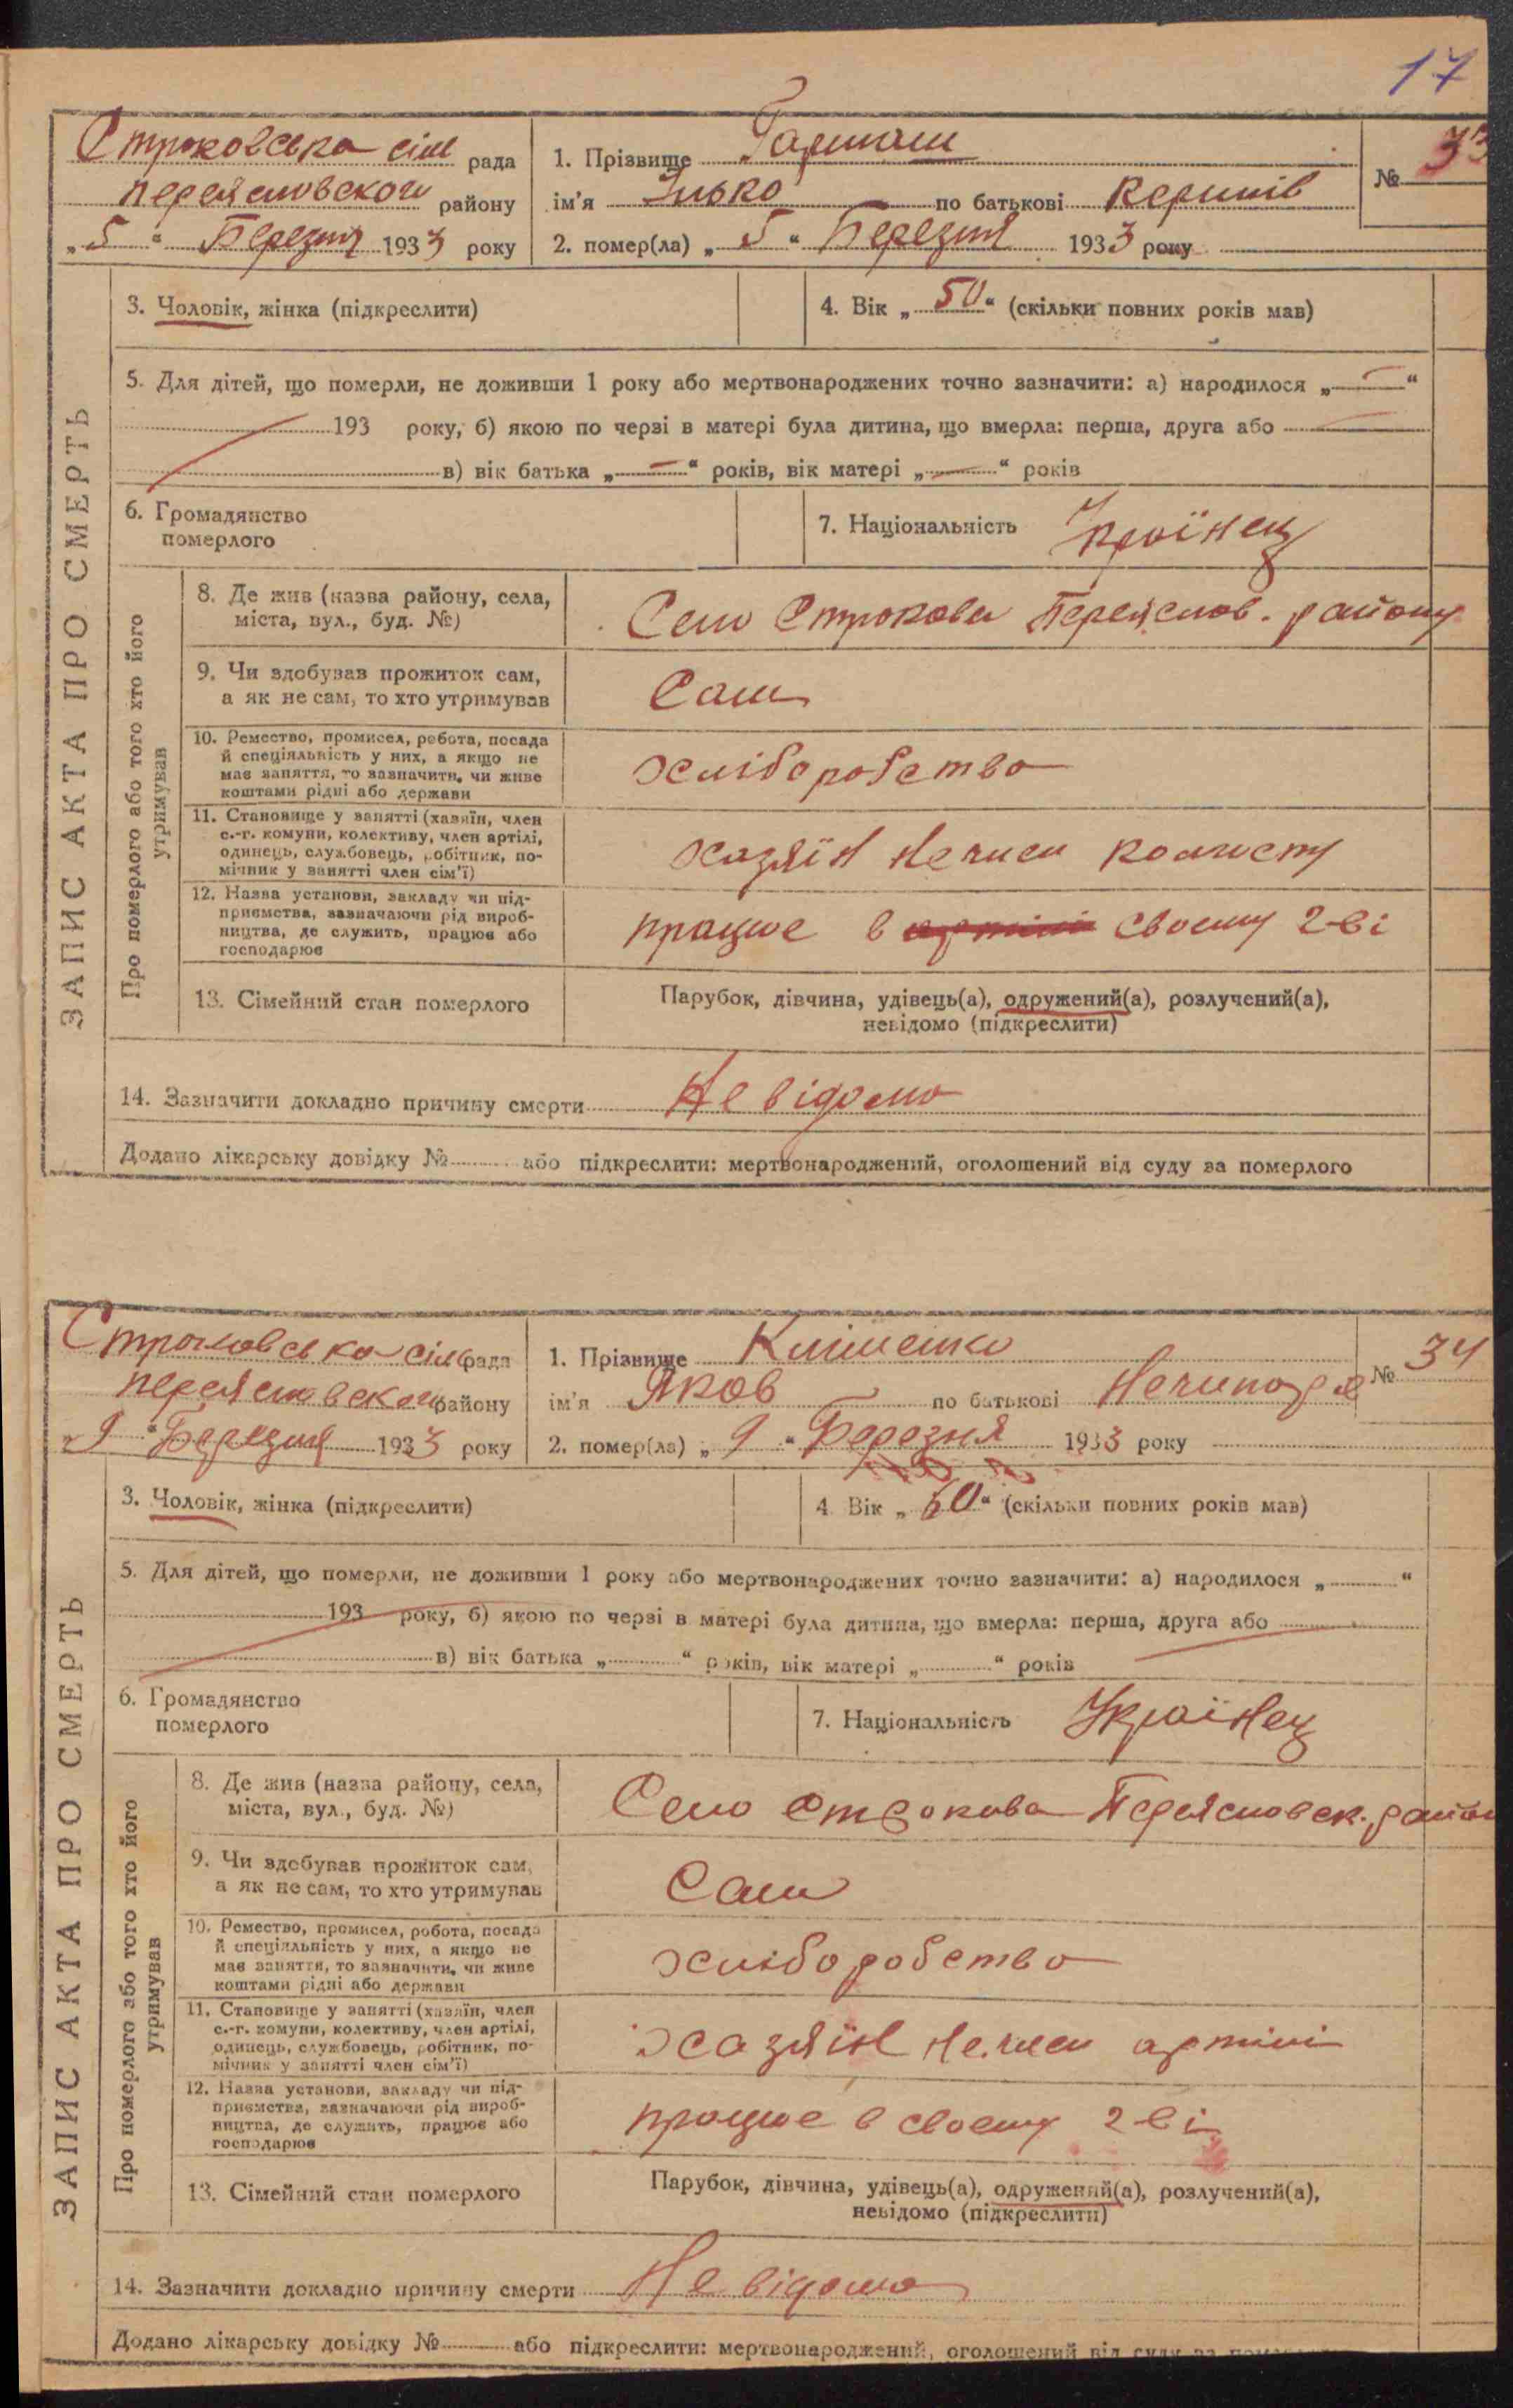 17
Строковська сіль рада
Переяславского району
„5“ Березня 1933 року
1. Прізвище Гармаш
ім'я Илько по батькові
2. помер(ла) „5“ Березня 1933 року
№ 33
3. Чоловік, жінка (підкреслити)
4. Вік „50“ (скільки повних років мав)
5. Для дітей, що померли, не доживши 1 року або мертвонароджених точно зазначити: а) народилося „—“
193 року, б) якою по черзі в матері була дитина, що вмерла: перша, друга або
в) вік батька „—“ років, вік матері „—“ років
6. Громадянство
померлого
7. Національність Українец
ЗАПИС АКТА ПРО СМЕРТЬ
Про померлого або того хто його
утримував
8. Де жив (назва району, села,
міста, вул., буд. №)
Село Строкова Переяслов. району
9. Чи здобував прожиток сам,
а як не сам, то хто утримував
Сам
10. Ремество, промисел, робота, посада
й спеціяльність у них, а якщо не
має заняття, то зазначити, чи живе
коштами рідні або держави
хліборобство
11. Становище у занятті (хазяїн, член
с.-г. комуни, колективу, член артілі,
одинець, службовець, робітник, по-
мічник у занятті член сім'ї)
хазяїн не член колгоспу
12. Назва установи, закладу чи під-
приємства, зазначаючи рід вироб-
ництва, де служить, працює або
господарює
працює в артілі своему г-ві
13. Сімейний стан померлого
Парубок, дівчина, удівець(а), одружений(а), розлучений(а),
невідомо (підкреслити)
14. Зазначити докладно причину смерти Не відомо
Додано лікарську довідку № або підкреслити: мертвонароджений, оголошений від суду за померлого
Строковська сіль рада
Переясловского району
„9“ Березня 1933 року
1. Прізвище Кліменко
ім'я Яков по батькові Нечипоря
2. помер(ла) „9“ Березня 1933 року
№ 34
3. Чоловік, жінка (підкреслити)
4 Вік „60“ (скільки повних років мав)
5. Для дітей, що померли, не доживши 1 року або мертвонароджених точно зазначити: а) народилося „ “
193 року, б) якою по черзі в матері була дитина, що вмерла: перша, друга або
в) вік батька „ “ років, вік матері „ “ років
6. Громадянство
померлого
7. Національність Українец
ЗАПИС АКТА ПРО СМЕРТЬ
Про померлого або того хто його
утримував
8. Де жив (назва району, села,
міста, вул., буд. №)
Село Строкова Переясловск. район
9. Чи здобував прожиток сам,
а як не сам, то хто утримував
Сам
10. Ремество, промисел, робота, посада
й спеціяльність у них, а якщо не
має заняття, то зазначити, чи живе
коштами рідні або держави
хліборобство
11. Становище у занятті (хазяїн, член
с.-г. комуни, колективу, член артілі,
одинець, службовець, робітник, по-
мічник у занятті член сім'ї)
хазяїн не член артілі
12. Назва установи, закладу чи під-
приємства, зазначаючи рід вироб-
ництва, де служить, працює або
господарює
працює в своему г-ві
13. Сімейний стан померлого
Парубок, дівчина, удівець(а), одружений(а), розлучений(а),
невідомо (підкреслити)
14. Зазначити докладно причину смерти Не відомо
Додано лікарську довідку № або підкреслити: мертвонароджений, оголошений від суду за